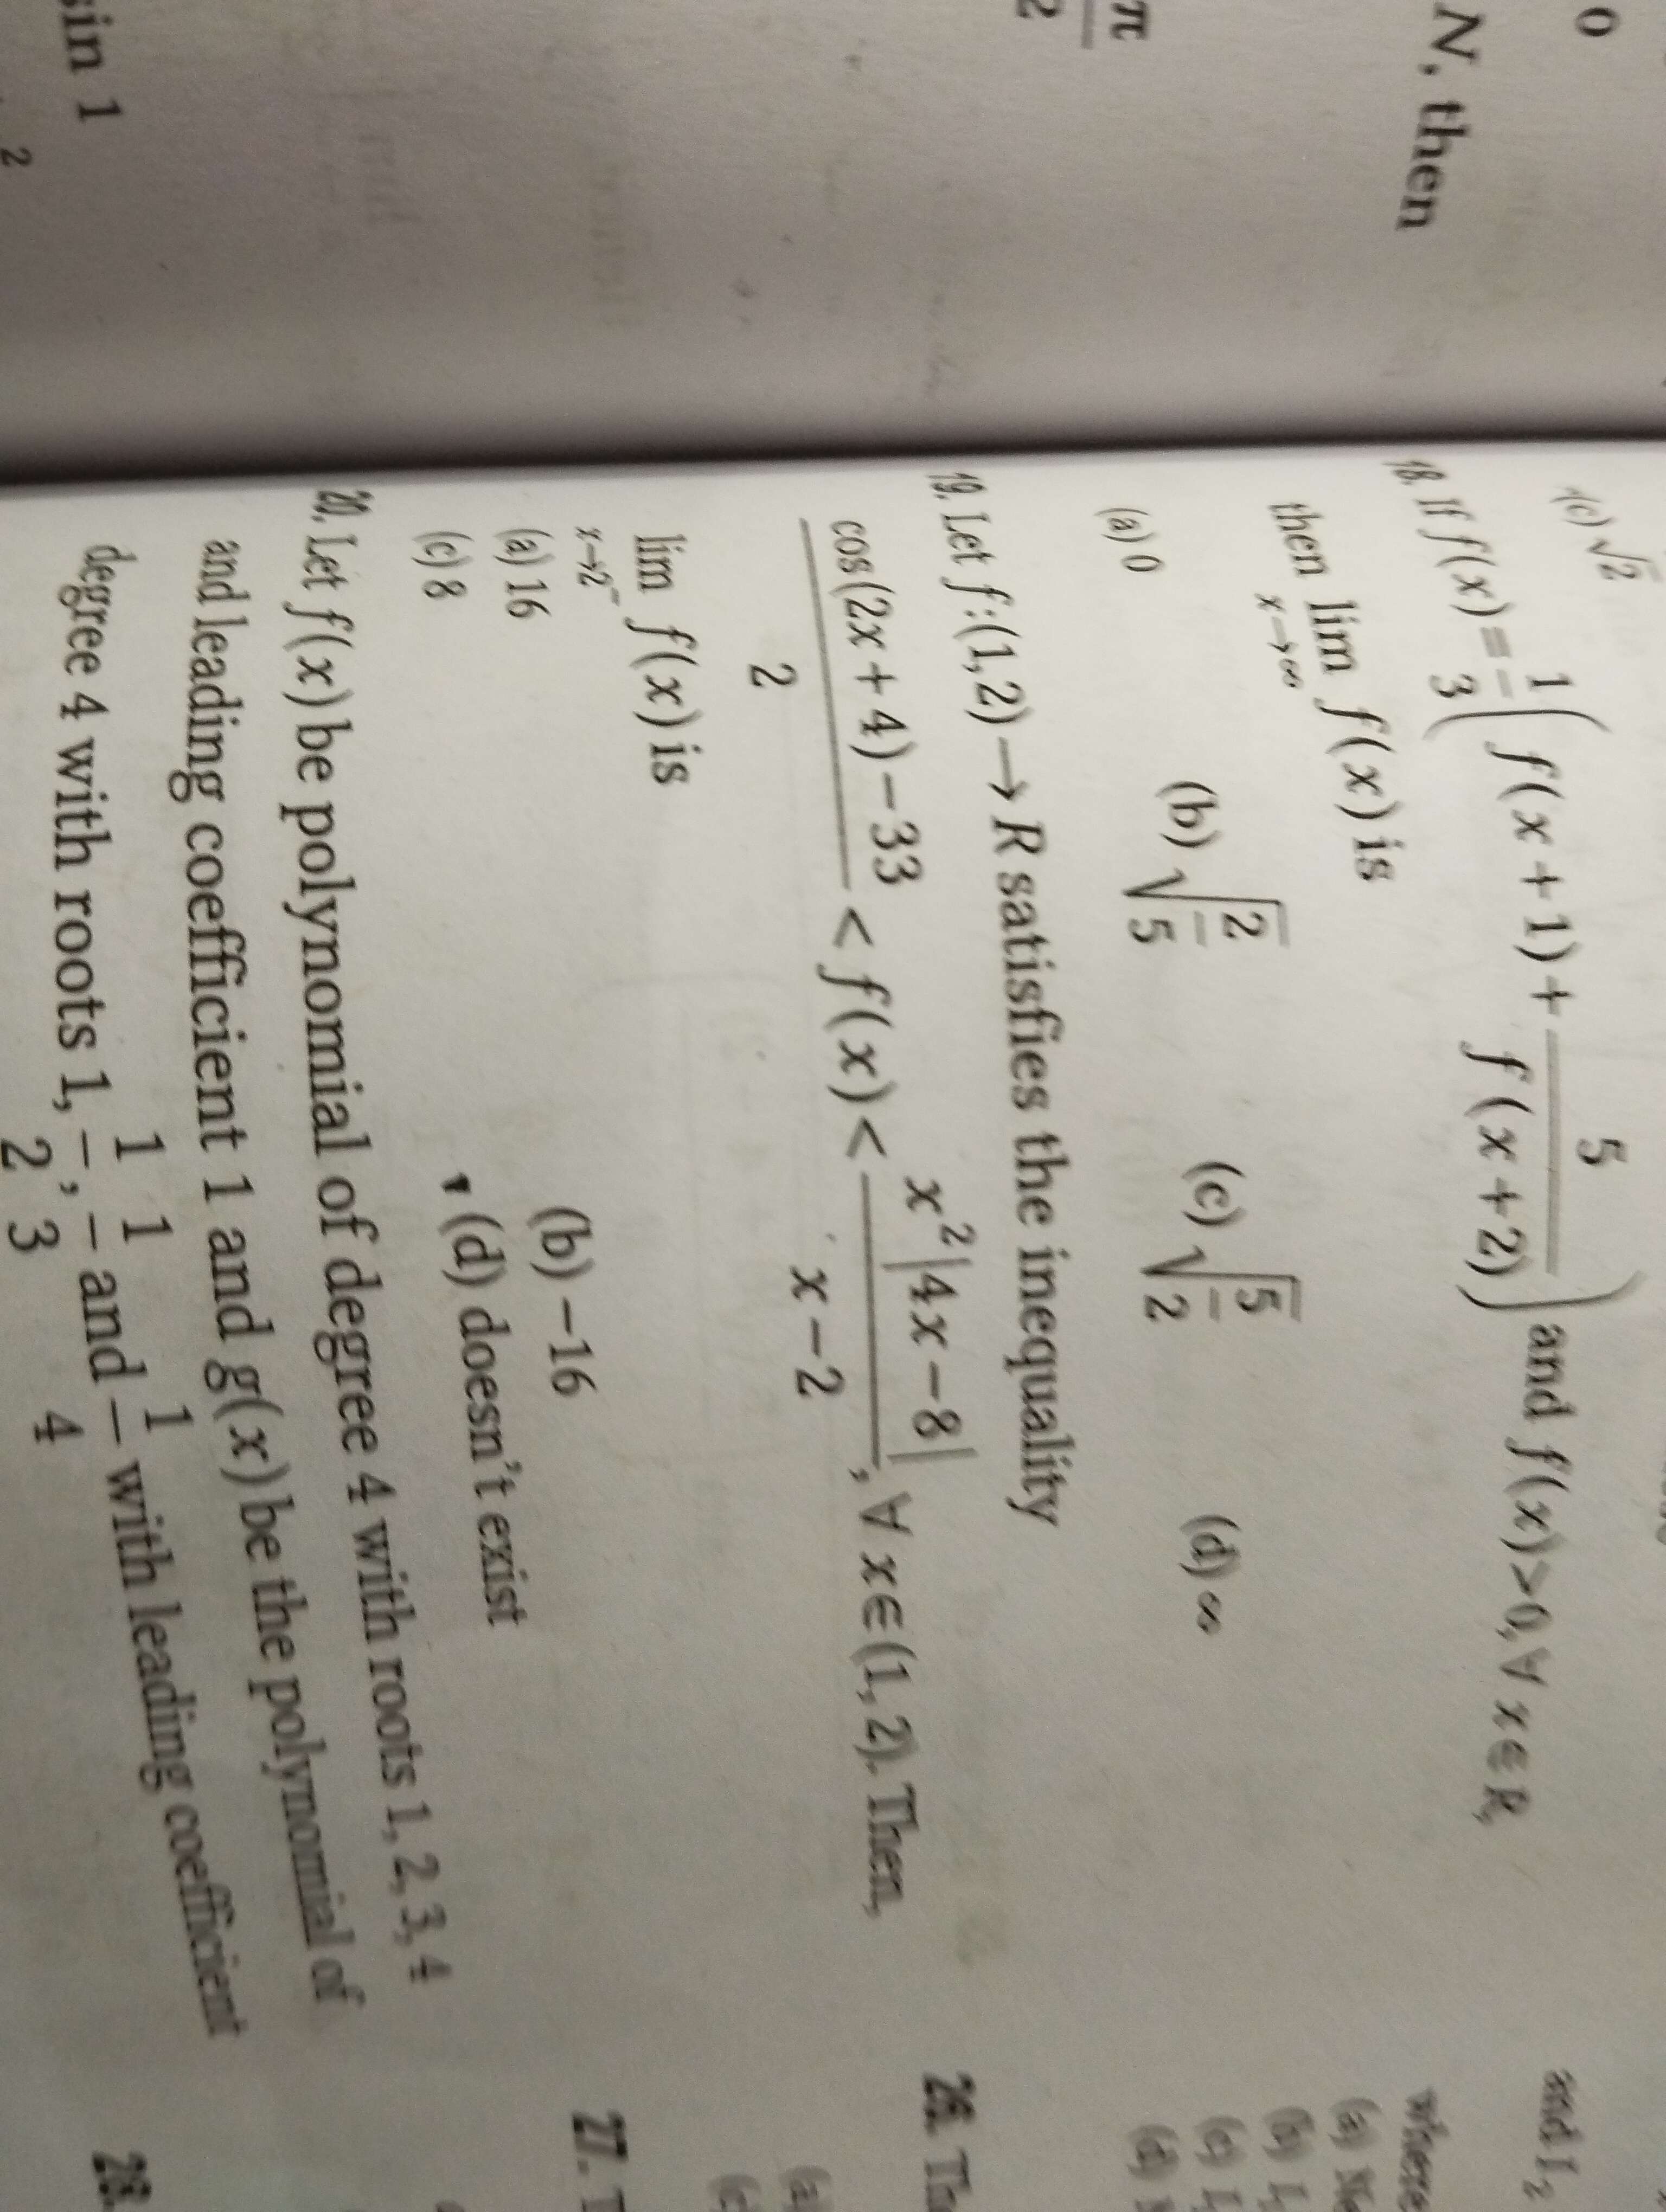 0
N, then
π
2
sin 1
2
(c) √2
18. If f(x) = 1/3 ( f(x + 1) + 5/f(x + 2) ) and f(x) > 0, ∀ x ∈ R,
then lim x→∞ f(x) is
(a) 0 (b) √(2/5) (c) √(5/2) (d) ∞
19. Let f:(1, 2) → R satisfies the inequality
cos(2x + 4) − 33 / 2 < f(x) < x²|4x − 8| / x − 2, ∀ x ∈ (1, 2). Then,
lim x→2⁻ f(x) is
(a) 16 (b) −16
(c) 8 (d) doesn't exist
20. Let f(x) be polynomial of degree 4 with roots 1, 2, 3, 4
and leading coefficient 1 and g(x) be the polynomial of
degree 4 with roots 1, 1/2, 1/3 and 1/4 with leading coefficient
and I₂
where
(a)
(b) I
(c) I
(d)
26. The
(a)
(c)
27. T
28.